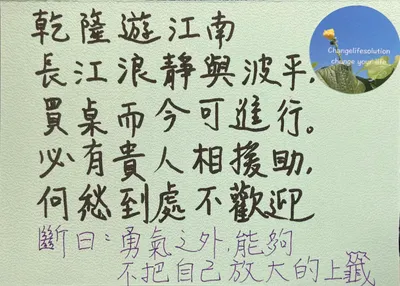 乾隆遊江南
長江浪靜與波平,
買桌而今可進行。
必有貴人相援助,
何愁到處不歡迎
斷曰:勇氣之外,能夠
不把自己放大的上籤
Changelifesolution
change your life